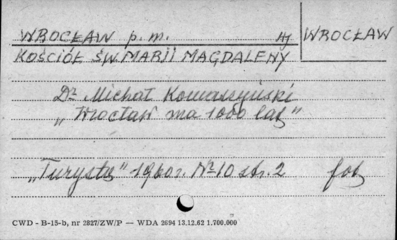 WROCŁAW p.m. WROCŁAW
KOŚCIÓŁ ŚW. MARII MAGDALENY
Dr Michał Kowaszyński
„Wrocław ma 1000 lat"
„Turysta" 1960 r. Nº 10 str. 2 fot
CWD - B-15-b, nr 2827/ZW/P — WDA 2694 13.12.62 1.700.000